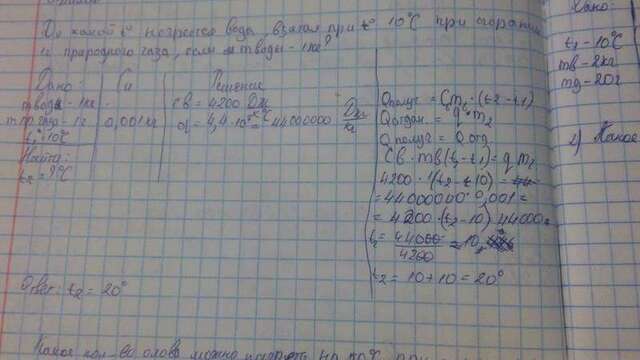 До какой t° нагреется вода, взятая при t° 10°С при сгорании
1г природного газа, если m воды - 1кг?
Дано:
m воды - 1кг
m пр.газа - 1г
t₁ = 10°C
Найти:
t₂ = ?°C
Си
0,001кг
Решение
cв = 4200 Дж
q = 4,4·10⁷ = 44000000 Дж/кг
Qполуч = C₁m₁·(t2-t1)
Qотдан. = q·m₂
Qполуч = Qотд
Cв·mв(t₂-t1) = qm₂
4200·1(t2-t10) =
= 44000000·0,001 =
= 4200·(t₂-10) 44000 =
t₂ = 44000/4200 = 10
t₂ = 10+10 = 20°
Ответ: t₂ = 20°
Какое кол-во олова можно
Дано:
t₁ - 10°C
mв - 2кг
mд - 20г
2) Какое